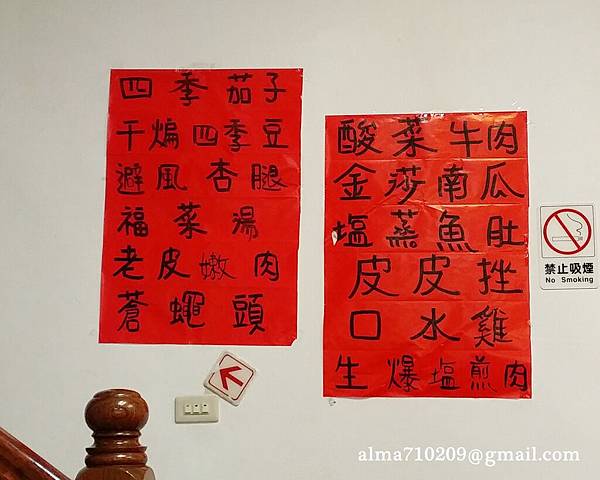 四季茄子
干煸四季豆
避風杏腿
福菜湯
老皮嫩肉
蒼蠅頭
酸菜牛肉
金莎南瓜
塩蒸魚肚
皮皮挫
口水雞
生爆塩煎肉
禁止吸煙
No Smoking
alma710209@gmail.com